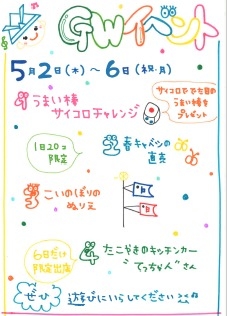 GWイベント
5月2日(木)～6日(祝・月)
1 うまい棒
サイコロチャレンジ
サイコロででた目の
うまい棒を
プレゼント
1日20コ
限定
2 春キャベツの
直売
3 こいのぼりの
ぬりえ
6日だけ
限定出店
4 たこやきのキッチンカー
"てっちゃん"さん
ぜひ 遊びにいらしてください